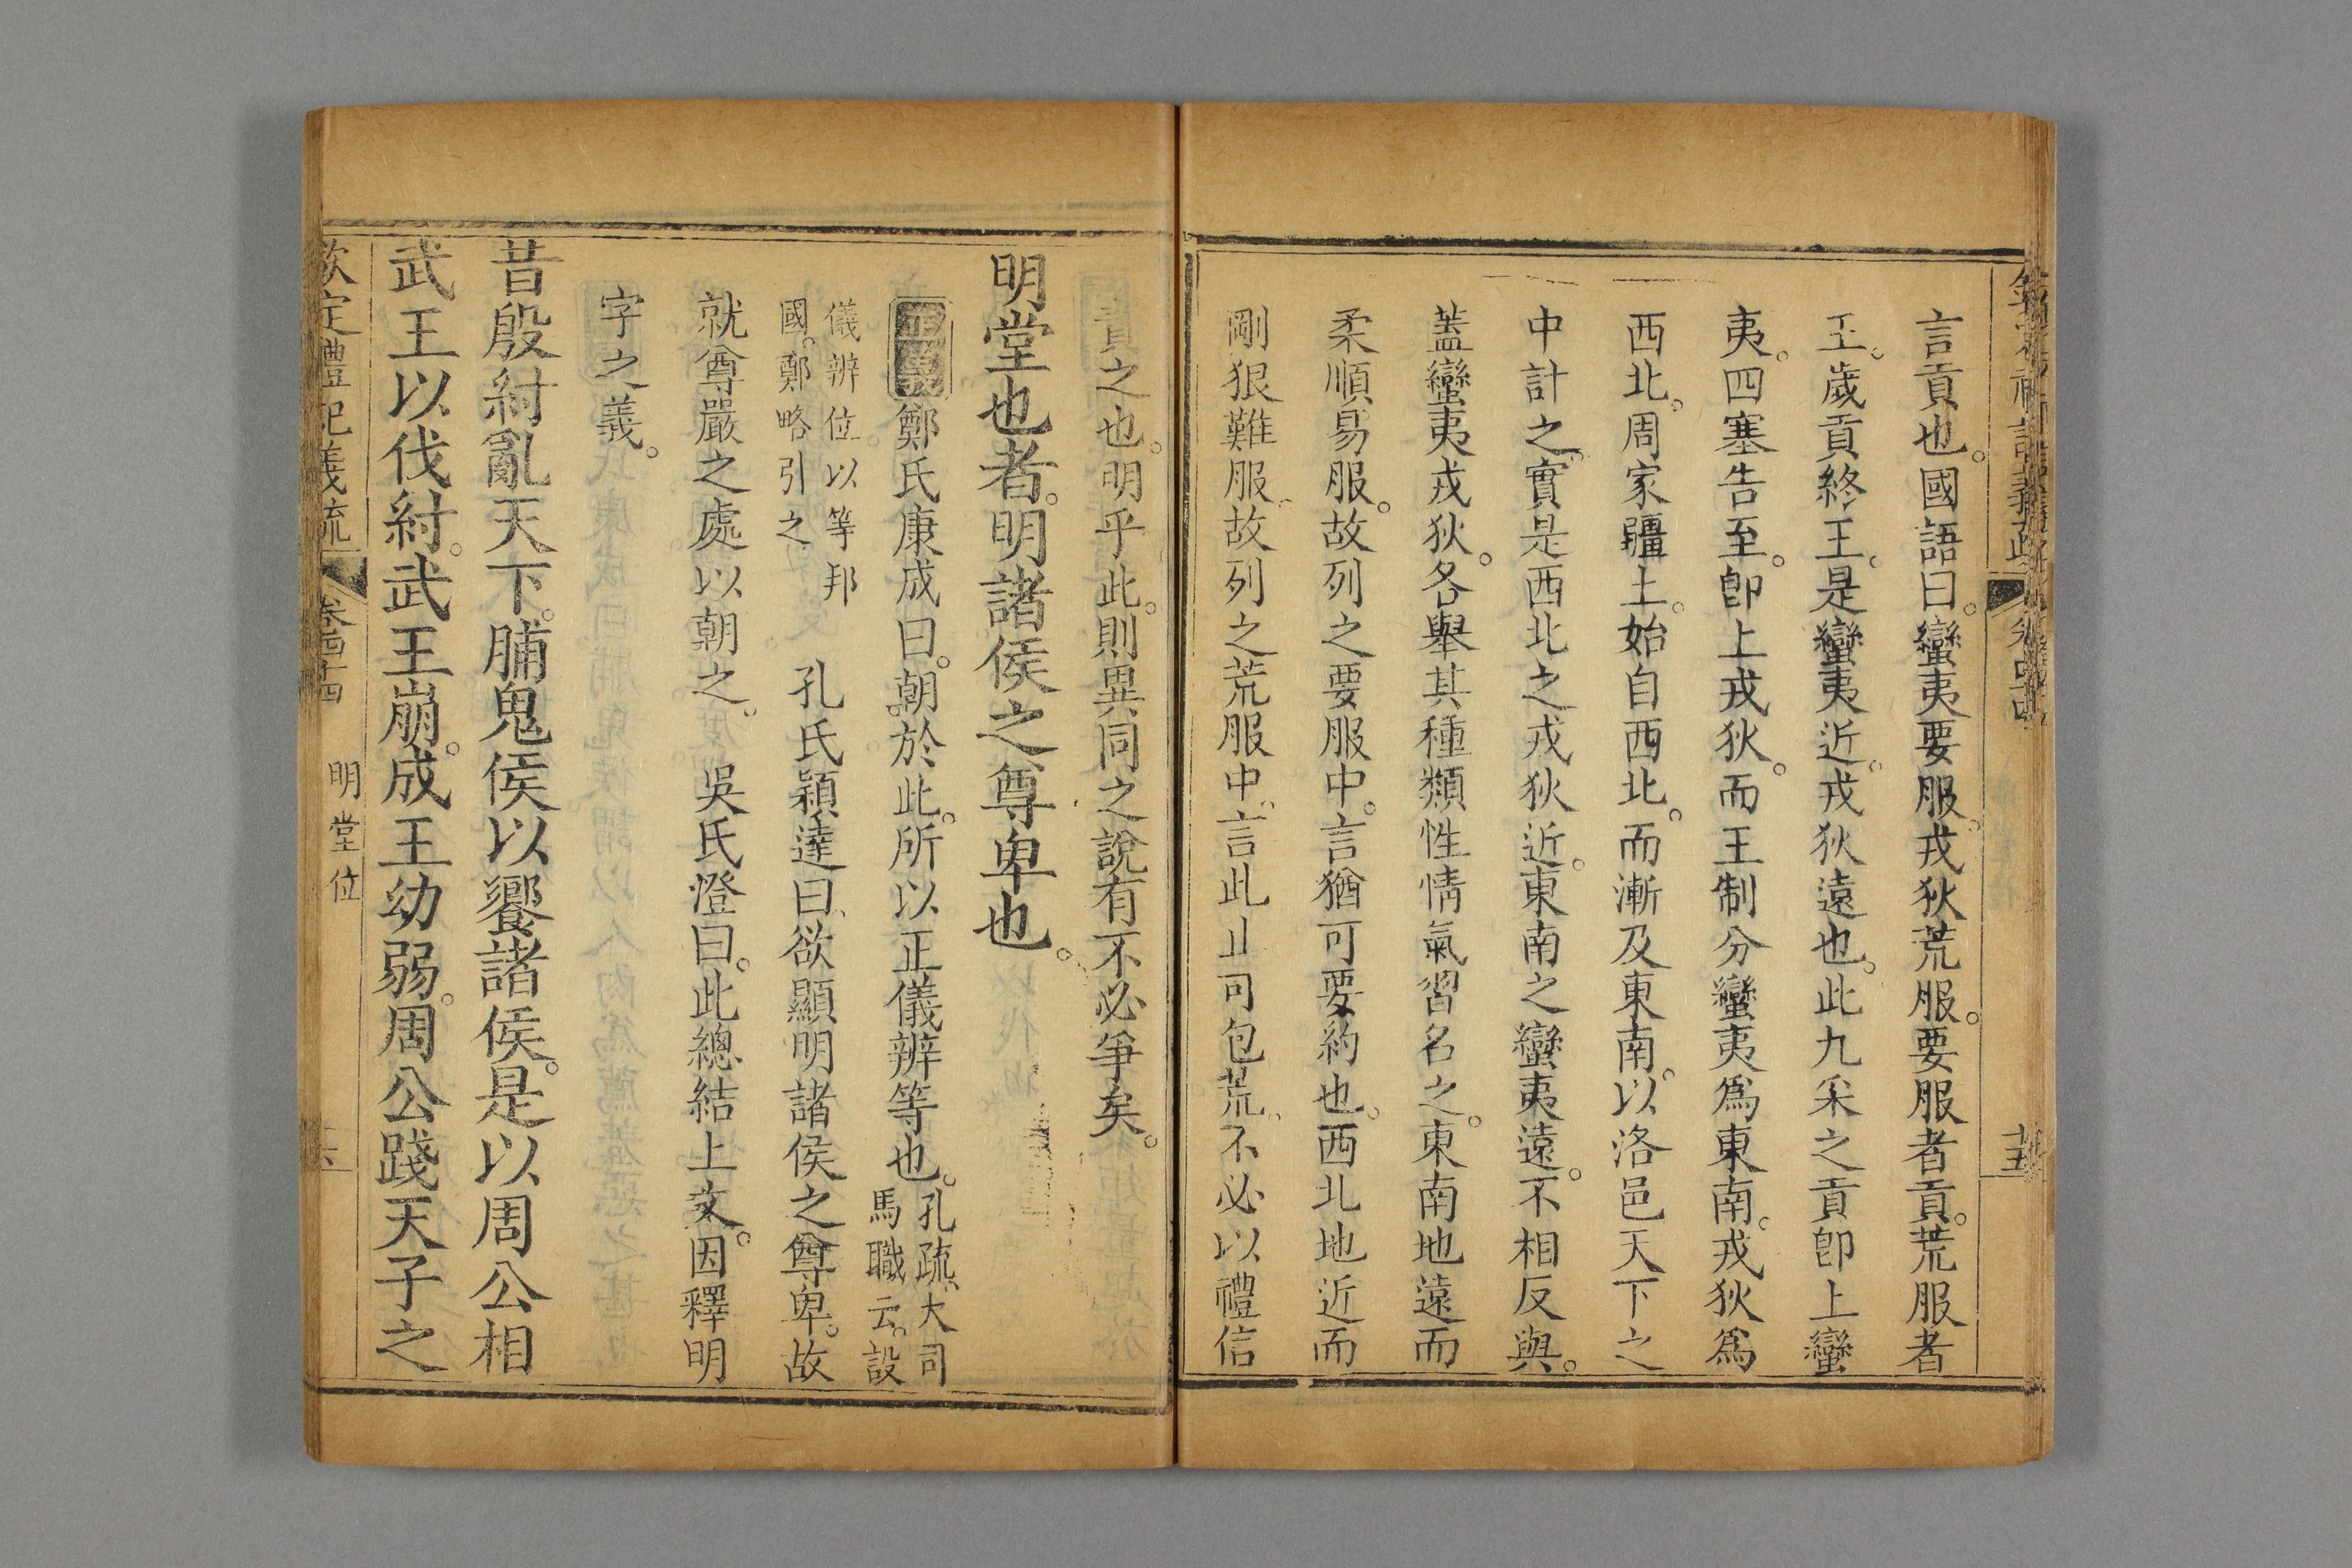 言貢也。國語曰。蠻夷要服。戎狄荒服。要服者貢。荒服者
王。歲貢終王。是蠻夷近。戎狄遠也。此九采之貢卽上蠻
夷。四塞告至。卽上戎狄。而王制分蠻夷爲東南。戎狄爲
西北。周家疆土。始自西北。而漸及東南。以洛邑天下之
中計之。實是西北之戎狄近。東南之蠻夷遠。不相反與。
蓋蠻夷戎狄。各舉其種類性情氣習名之。東南地遠而
柔順易服。故列之要服中。言猶可要約也。西北地近而
剛狠難服。故列之荒服中。言此止可包荒。不必以禮信
責之也。明乎此。則異同之說有不必爭矣。
明堂也者。明諸侯之尊卑也。
正義鄭氏康成曰。朝於此。所以正儀辨等也。孔疏、大司
馬職云。設
儀辨位以等邦
國。鄭略引之 孔氏穎達曰、欲顯明諸侯之尊卑。故
就尊嚴之處以朝之。 吳氏澄曰。此總結上文。因釋明
字之義。
昔殷紂亂天下。脯鬼侯以饗諸侯。是以周公相
武王以伐紂。武王崩。成王幼弱。周公踐天子之
欽定禮記義疏 卷四十四 明堂位